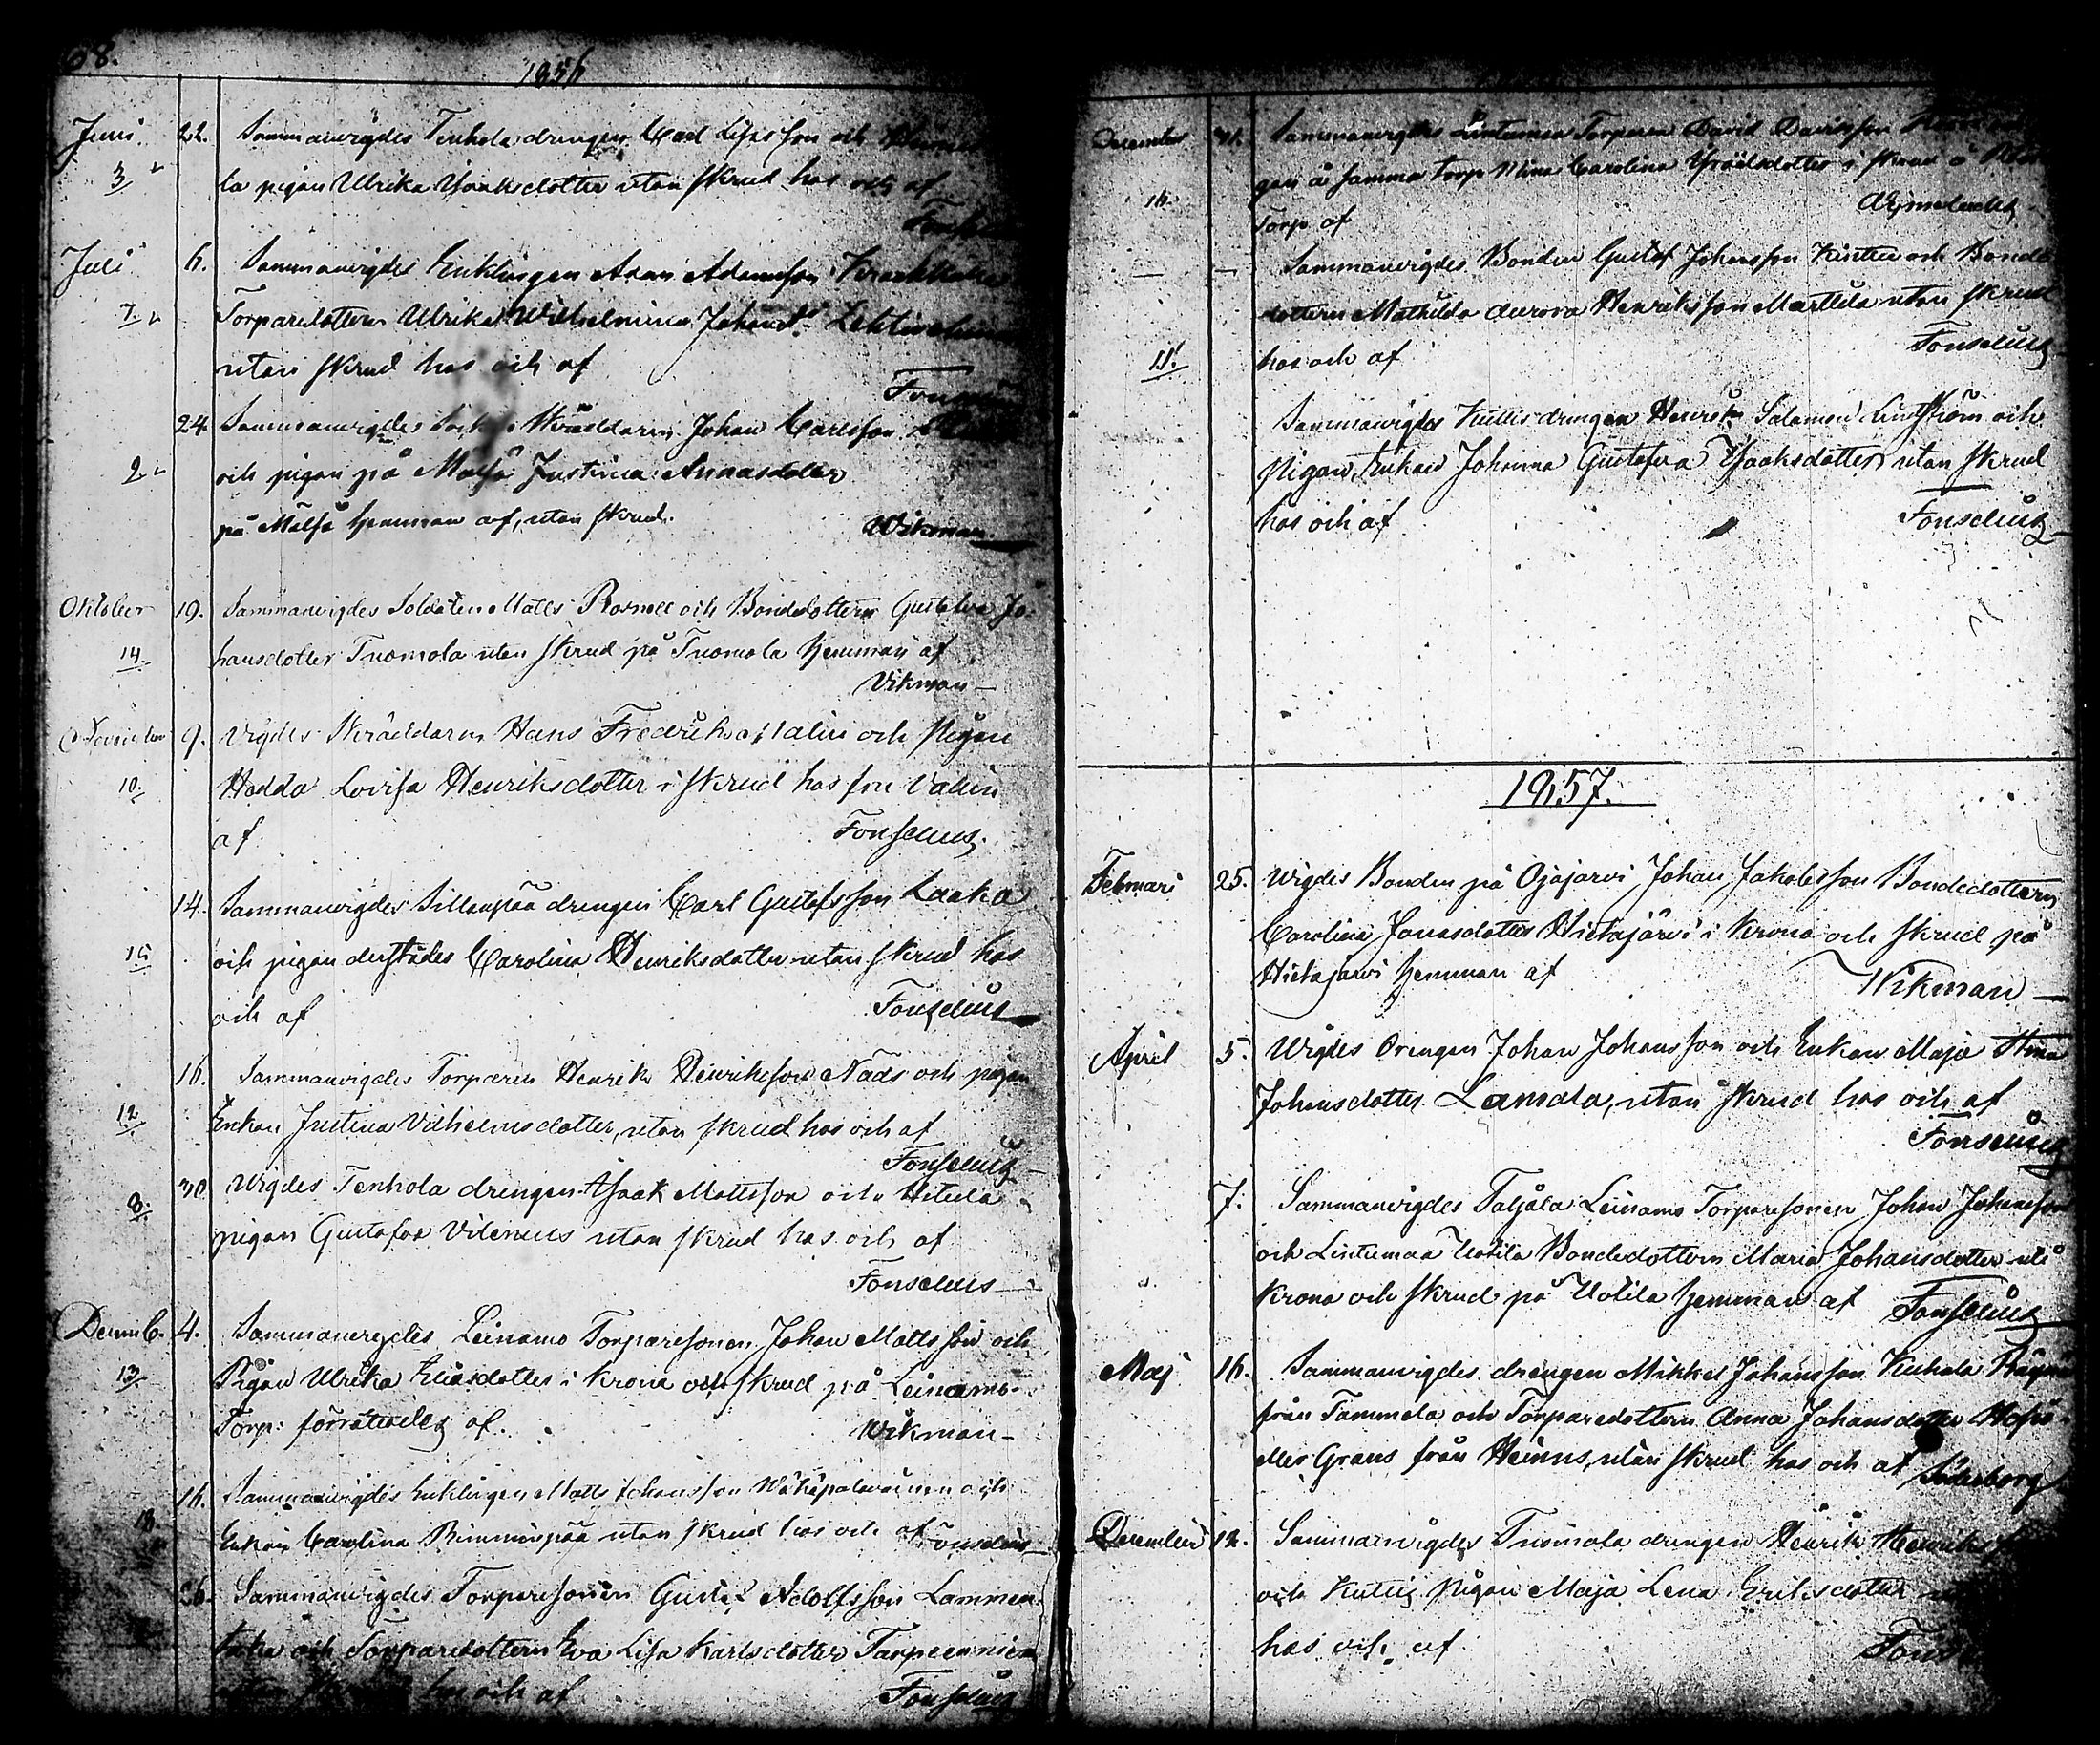 68.
1856
Juni 22. Sammanvigdes Tenhola drengen Carl Lisasson och
3 la pigan Ulrika Isaksdotter utan skrud hos och af
Juli 6. Sammanvigdes Enklingen Adam Adamsson
7. Torparedottern Ulrika Wilhelmina Johansd:
utan skrud hos och af
24. Sammanvigdes Skräddaren Johan Carlsson
2 och pigan på Justina Annasdotter
på hemman af, utan skrud. Wikman.
Oktober 19. Sammanvigdes Soldaten Matts och Bondedottern Gustafva Jo-
14. hansdotter Tuomola utan skrud på Tuomola hemman af
Vikman
November 9. Vigdes Skräddaren Hans Fredrik och Pigan
10. Hedda Lovisa Henriksdotter i skrud hos fru Valin
af. Fonselius.
14. Sammanvigdes Sillanpää drengen Carl Gustafsson Laaka
15 och pigan derstädes Carolina Henriksdotter utan skrud hos
och af Fonselius
16. Sammanvigdes Torparen Henrik Henriksson Näds och pigan
12 Enkan Justina Vilhelmsdotter, utan skrud hos och af
Fonselius
30 Vigdes Tenhola drengen Isaak Mattsson och
8. pigan Gustafva Vilenius utan skrud hos och af
Fonselius
Decemb. 4. Sammanvigdes Leinamo Torparesonen Johan Mattsson och
13 Pigan Ulrika Eliasdotter i krona och skrud på Leinamo
Torp: förrättades af. Wikman
16. Sammanvigdes Enklingen Matts Johansson och
18 Enkan Carolina Rimminpää utan skrud hos och af Fonselius
26. Sammanvigdes Torparesonen Gustaf Adolfsson Lammen-
och Torparedottern Eva Lisa Karlsdotter
utan skrud hos och af Fonselius
December 31. Sammanvigdes Lintumaa Torparen David Davidsson
16. gan å samma torp Mina Carolina Israelsdotter i skrud å
Torp af
— — Sammanvigdes Bonden Gustaf Johansson och Bonde
dottern Mathilda Aurora Henriksson Marttila utan skrud
11. hos och af Fonselius
Sammanvigdes Kuttis drengen Henrik Salomon och
Pigan, Enkan Johanna Gustafva Isaaksdotter utan skrud
hos och af Fonselius
1857.
Februari 25. Wigdes Bonden på Ojajärvi Johan Jakobsson Bondedottern
Carolina Jonasdotter Hietajärvi i krona och skrud på
Hietajärvi hemman af Wikman
April 5. Wigdes Drengen Johan Johansson och Enkan Maja Stina
Johansdotter Lamala, utan skrud hos och af
Fonselius
7. Sammanvigdes Taljala Leinamo Torparesonen Johan Johansson
och Lintumaa Uotila Bondedottern Maria Johansdotter uti
krona och skrud på Uotila hemman af Fonselius
Maj 16. Sammanvigdes drengen Mikkel Johansson
från Tammela och Torparedottern Anna Johansdotter
eller Grans från utan skrud hos och af
December 12. Sammanvigdes Tuomola drengen Henrik
och Kuttis pigan Maja Lena Eriksdotter
hos och af